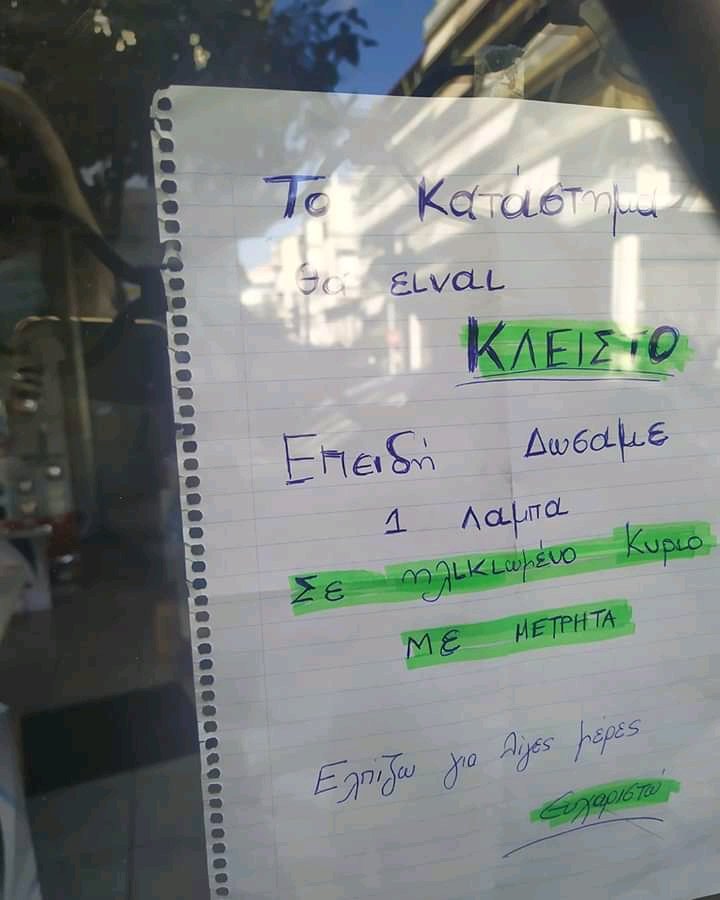 Το Κατάστημα
θα ειναι
ΚΛΕΙΣΤΟ
Επειδή Δωσαμε
1 λαμπα
Σε ηλικιωμένο Κυριο
ΜΕ ΜΕΤΡΗΤΑ
Ελπίζω για λίγες μέρες
Ευχαριστώ